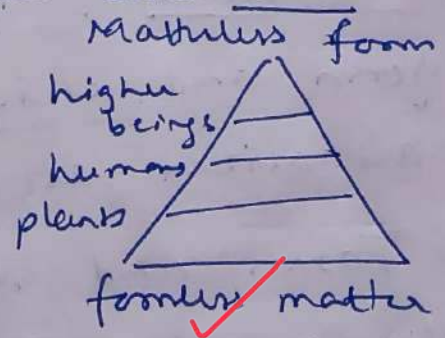 Matterless form
higher
beings
humans
plants
formless matter